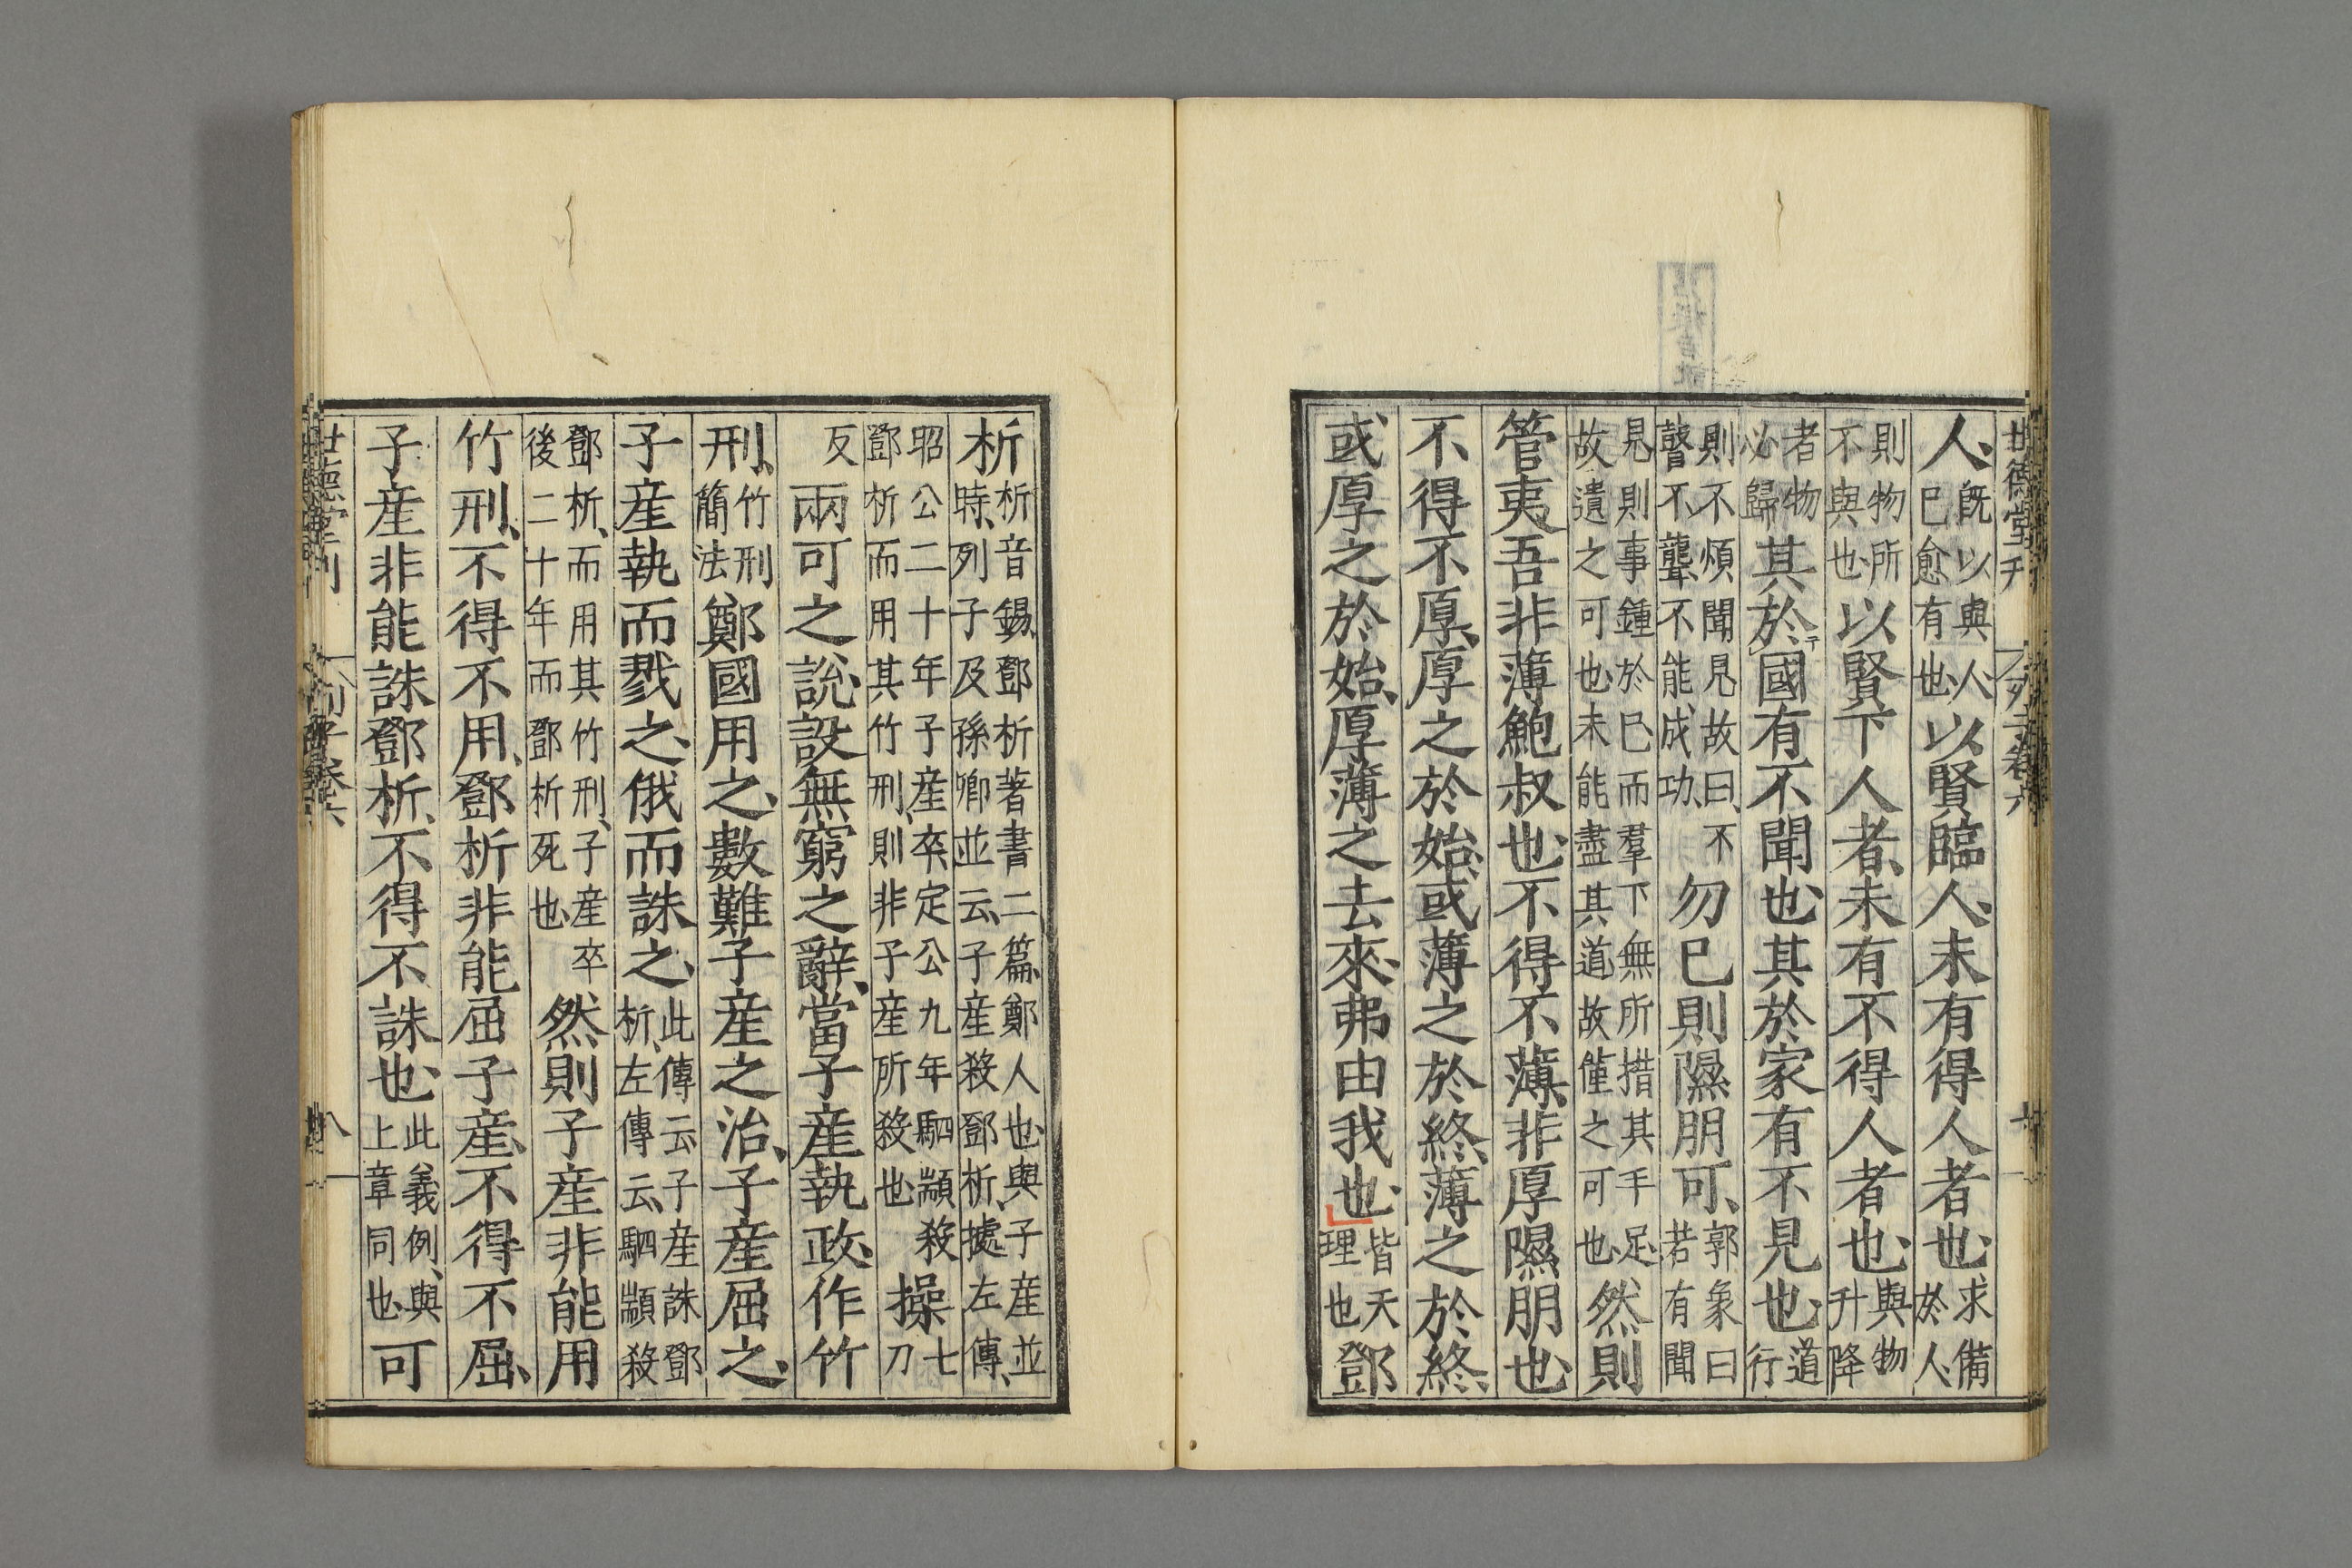 世德堂刊 列子卷六
人、既以與人已愈有也、以賢臨人、未有得人者也、求備於人、
則物所不與也、以賢下人者、未有不得人者也、與物升降
者物必歸其於國有不聞也、其於家有不見也、道行
則不煩聞見故曰、不瞽不聾不能成功、勿已則隰朋可、郭象曰若有聞
見則事鍾於已而羣下無所措其手足、故遺之可也未能盡其道故僅之可也、然則
管夷吾非薄鮑叔也、不得不薄、非厚隰朋也、
不得不厚、厚之於始、或薄之於終、薄之於終、
或厚之於始、厚薄之去來、弗由我也、皆天理也鄧
析析音錫、鄧析著書二篇、鄭人也、與子産並時、列子及孫卿並云、子産殺鄧析、據左傳、
昭公二十年子産卒、定公九年駟顓殺鄧析而用其竹刑、則非子産所殺也、操七刀
反兩可之說、設無窮之辭、當子産執政、作竹
刑、竹刑簡法鄭國用之、數難子産之治、子産屈之、
子産執而戮之、俄而誅之、此傳云子産誅鄧析、左傳云、駟顓殺
鄧析、而用其竹刑、子産卒後二十年而鄧析死也、然則子産非能用
竹刑、不得不用、鄧析非能屈子産、不得不屈、
子産非能誅鄧析、不得不誅也、此義例、與上章同也、可
世德堂刊 列子卷六 八